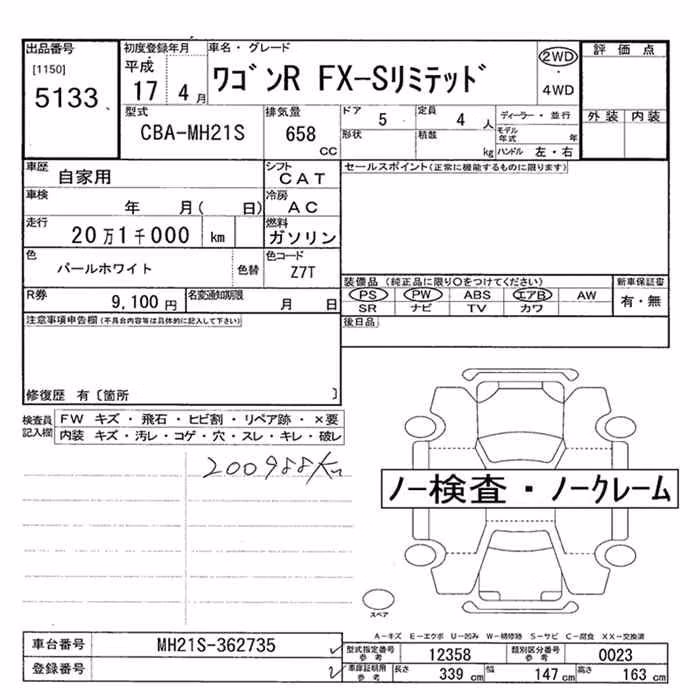 出品番号
[1150]
5133
初度登録年月
平成
17 4 月
車名・グレード
ワゴンR FX-Sリミテッド
2WD
・
4WD
評価点
外装 内装
型式
CBA-MH21S
排気量
658
CC
ドア 5
形状
定員 4 人
積載 kg
ディーラー・並行
モデル年式 年
ハンドル 左・右
車歴
自家用
シフト
CAT
車検
年 月( 日)
冷房
AC
走行
20万1千000 km
燃料
ガソリン
色
パールホワイト
色替
色コード
Z7T
R券
9,100 円
名変通知期限
月 日
セールスポイント(正常に機能するものに限ります)
装備品 (純正品に限り○をつけてください)
PS PW ABS エアB AW
SR ナビ TV カワ
新車保証書
有・無
後日品
注意事項申告欄(不具合内容等は具体的に記入して下さい)
修復歴 有〔箇所 〕
検査員記入欄
FW キズ・飛石・ヒビ割・リペア跡・×要
内装 キズ・汚レ・コゲ・穴・スレ・キレ・破レ
200988km
ノー検査・ノークレーム
スペア
A-キズ E-エクボ U-凹み W-補修跡 S-サビ C-腐食 XX-交換済
車台番号 MH21S-362735
登録番号
型式指定番号 参考 12358
類別区分番号 参考 0023
車庫証明用 参考 長さ 339 cm 幅 147 cm 高さ 163 cm